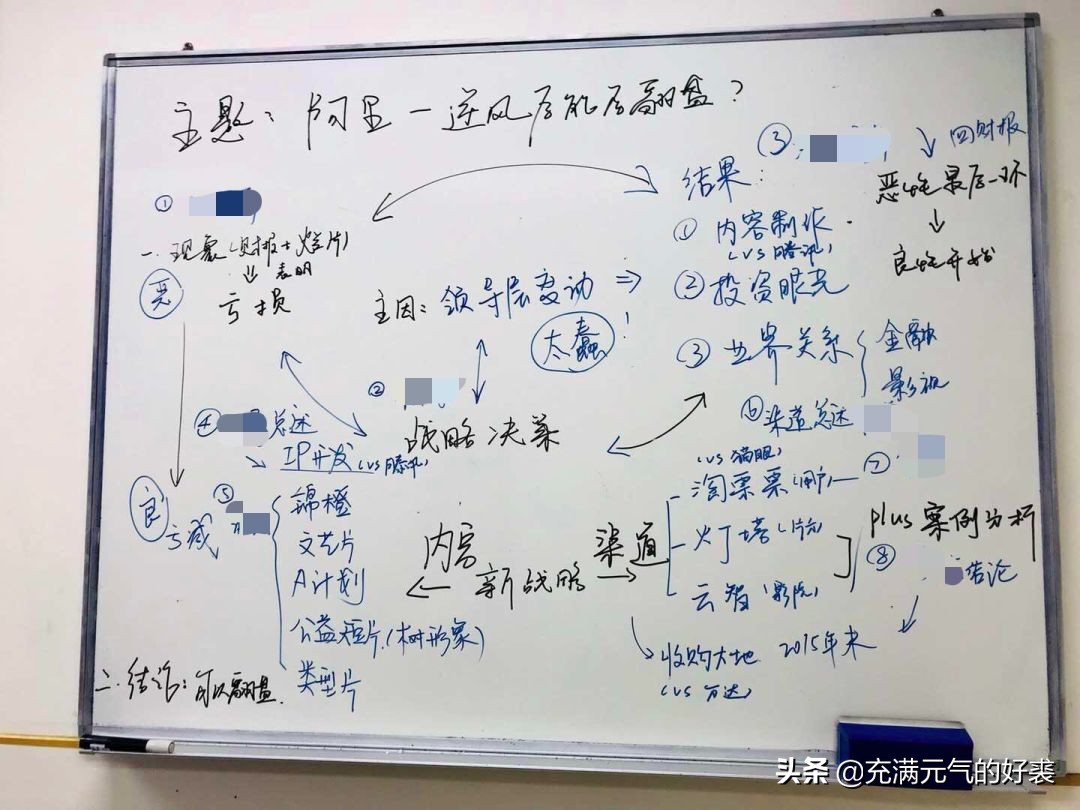 主题：阿里一逆风后能否翻盘？
①
一.现象(财报+烂片)
表明
亏损
恶
主因：领导层变动
太蠢！
②
战略决策
结果：
①内容制作
(VS腾讯)
②投资眼光
③业界关系
金融
影视
③
回财报
恶性最后一环
良性开始
④
总述
IP开发(VS腾讯)
良
亏减
⑤
锦橙
文艺片
A计划
公益短片(树形象)
类型片
内容
新战略
渠道
⑥渠道总述
(VS猫眼)
淘票票(用户)
灯塔(片方)
云智(影院)
⑦
plus案例分析
⑧
结论
收购大地 2015年末
(VS万达)
二.结论：可以翻盘
头条 @充满元气的好裴